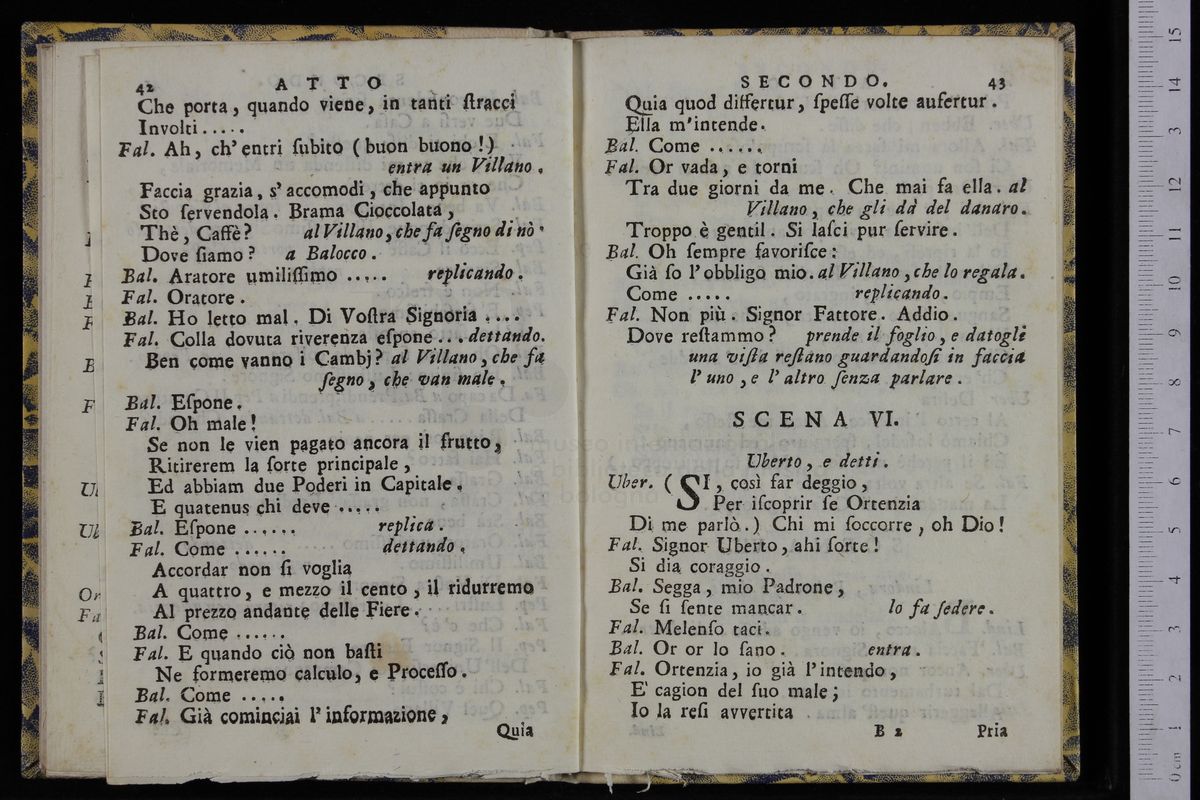 42 ATTO
Che porta, quando viene, in tanti ſtracci
Involti.....
Fal. Ah, ch'entri ſubito (buon buono!)
entra un Villano.
Faccia grazia, s'accomodi, che appunto
Sto ſervendola. Brama Cioccolata,
Thè, Caffè? al Villano, che fa ſegno di nò.
Dove ſiamo? a Balocco.
Bal. Aratore umiliſſimo ..... replicando.
Fal. Oratore.
Bal. Ho letto mal. Di Voſtra Signoria ....
Fal. Colla dovuta riverenza eſpone... dettando.
Ben come vanno i Cambj? al Villano, che fa
ſegno, che van male.
Bal. Eſpone.
Fal. Oh male!
Se non le vien pagato ancora il frutto,
Ritirerem la ſorte principale,
Ed abbiam due Poderi in Capitale.
E quatenus chi deve .....
Bal. Eſpone ...... replica.
Fal. Come ...... dettando.
Accordar non ſi voglia
A quattro, e mezzo il cento, il ridurremo
Al prezzo andante delle Fiere.
Bal. Come ......
Fal. E quando ciò non baſti
Ne formeremo calculo, e Proceſſo.
Bal. Come .....
Fal. Già cominciai l'informazione,
Quia
SECONDO. 43
Quia quod differtur, ſpeſſe volte aufertur.
Ella m'intende.
Bal. Come ......
Fal. Or vada, e torni
Tra due giorni da me. Che mai fa ella. al
Villano, che gli dà del danaro.
Troppo è gentil. Si laſci pur ſervire.
Bal. Oh ſempre favoriſce:
Già ſo l'obbligo mio. al Villano, che lo regala.
Come ..... replicando.
Fal. Non più. Signor Fattore. Addio.
Dove reſtammo? prende il foglio, e datogli
una viſta reſtano guardandoſi in faccia
l'uno, e l'altro ſenza parlare.
SCENA VI.
Uberto, e detti.
Uber. (SI, così far deggio,
Per iſcoprir ſe Ortenzia
Di me parlò.) Chi mi ſoccorre, oh Dio!
Fal. Signor Uberto, ahi ſorte!
Si dia coraggio.
Bal. Segga, mio Padrone,
Se ſi ſente mancar. lo fa ſedere.
Fal. Melenſo taci.
Bal. Or or lo ſano. entra.
Fal. Ortenzia, io già l'intendo,
E' cagion del ſuo male;
Io la reſi avvertita
B 2 Pria